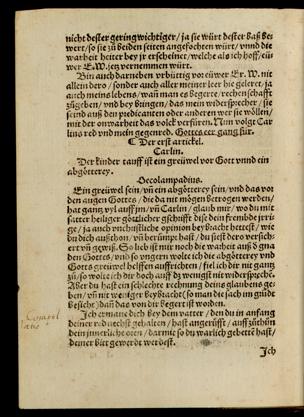 nicht dester geringwichtiger / ja sie würt dester baß be
wert / so sie zů beiden seiten angefochten würt / vnnd die
warheit heiter bey jr erscheinet / welche als ich hoff / eü
wer E.W. jetz vernemmen würt.
Bin auch darneben vrbüttig vor eüwer Er. W. nit
allein dero / sonder auch aller meiner leer hie geleret / ja
auch meins lebens / wañ man es begert / rechenschafft
zůgeben / vnd bey bringen / das mein widersprecher / sie
seind auß den predicanten oder anderen wer sie wöllen /
mit der onwarheit das volck verfüren. Nun volgt Car
lins red vnd mein gegenred. Gottes eer gang für.
Der erst artickel.
Carlin.
Der kinder tauff ist ein greüwel vor Gott vnnd ein
abgötterey.
Oecolampadius.
Ein greüwel sein / vñ ein abgötterey sein / vnd das vor
den augen Gottes / die da nit mögen betrogen werden /
hat gang vyl auff jm / vñ Carlin / glaub mir / wo du mit
satter heiliger göttlicher gschrifft dise dein frembde jrri
ge / ja auch vnchristliche opinion beybracht hettest / wie
du dich außthon / vñ berümpt hast / du
Gottes greüwel helffen auffrichten / fiel ich dir nit gang
zů / so wolte ich dir doch auffs wenigst nit widersprechē.
Aber du hast ein schlechte rechnung deins glaubens ge-
ben / vñ nit weniger beybracht / so man die sach im grůdt
besicht / dañ das von dir begert ist worden.
Ich ermane dich bey dem vatter / den du in anfang
deiner red
dein innerlich oren / darmit so du warlich gebettē hast /
deiner bitt gewerdt werdest.
Ich